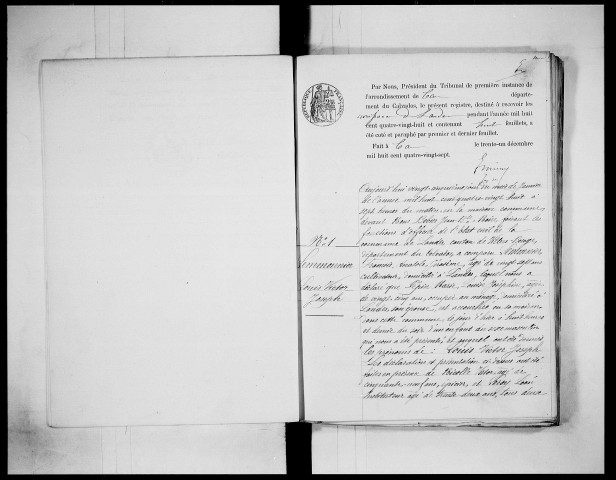 Par Nous, Président du Tribunal de première instance de
l'arrondissement de Caen département
ment du Calvados, le présent registre, destiné à recevoir les
pendant l'année mil huit
cent quatre-vingt-huit et contenant huit feuillets, a
été coté et paraphé par premier et dernier feuillet.
Fait à Caen le trente-un décembre
mil huit cent quatre-vingt-sept.
RÉPUBLIQUE FRANÇAISE
N° 1
Lemmonnier
Louis Victor
Joseph
Aujourd'hui vingt du mois de Janvier
de l'année mil huit cent quatre-vingt huit à
sept heures du matin en la maison commune
devant Nous Jean Maire faisant les
fonctions d'officier de l'Etat civil de la
commune de Landes canton de Villers-Bocage
département du Calvados, a comparu
âgé de vingt sept ans
cultivateur, domicilié à Landes, lequel nous a
déclaré que Marie Louise Joséphine, âgée
de vingt cinq ans, occupée au ménage, domiciliée à
Landes, son épouse, est accouchée en sa maison
dans cette commune le jour d'hier à huit heures
et demie du soir d'un enfant du sexe masculin
qui nous a été présenté, et auquel ont été donnés
les prénoms de : Louis Victor Joseph
Les déclaration et présentation ci-dessus ont été
faites en présence de Victor, âgé de
cinquante neuf ans, épicier, et Louis
instituteur âgé de trente deux ans, tous deux